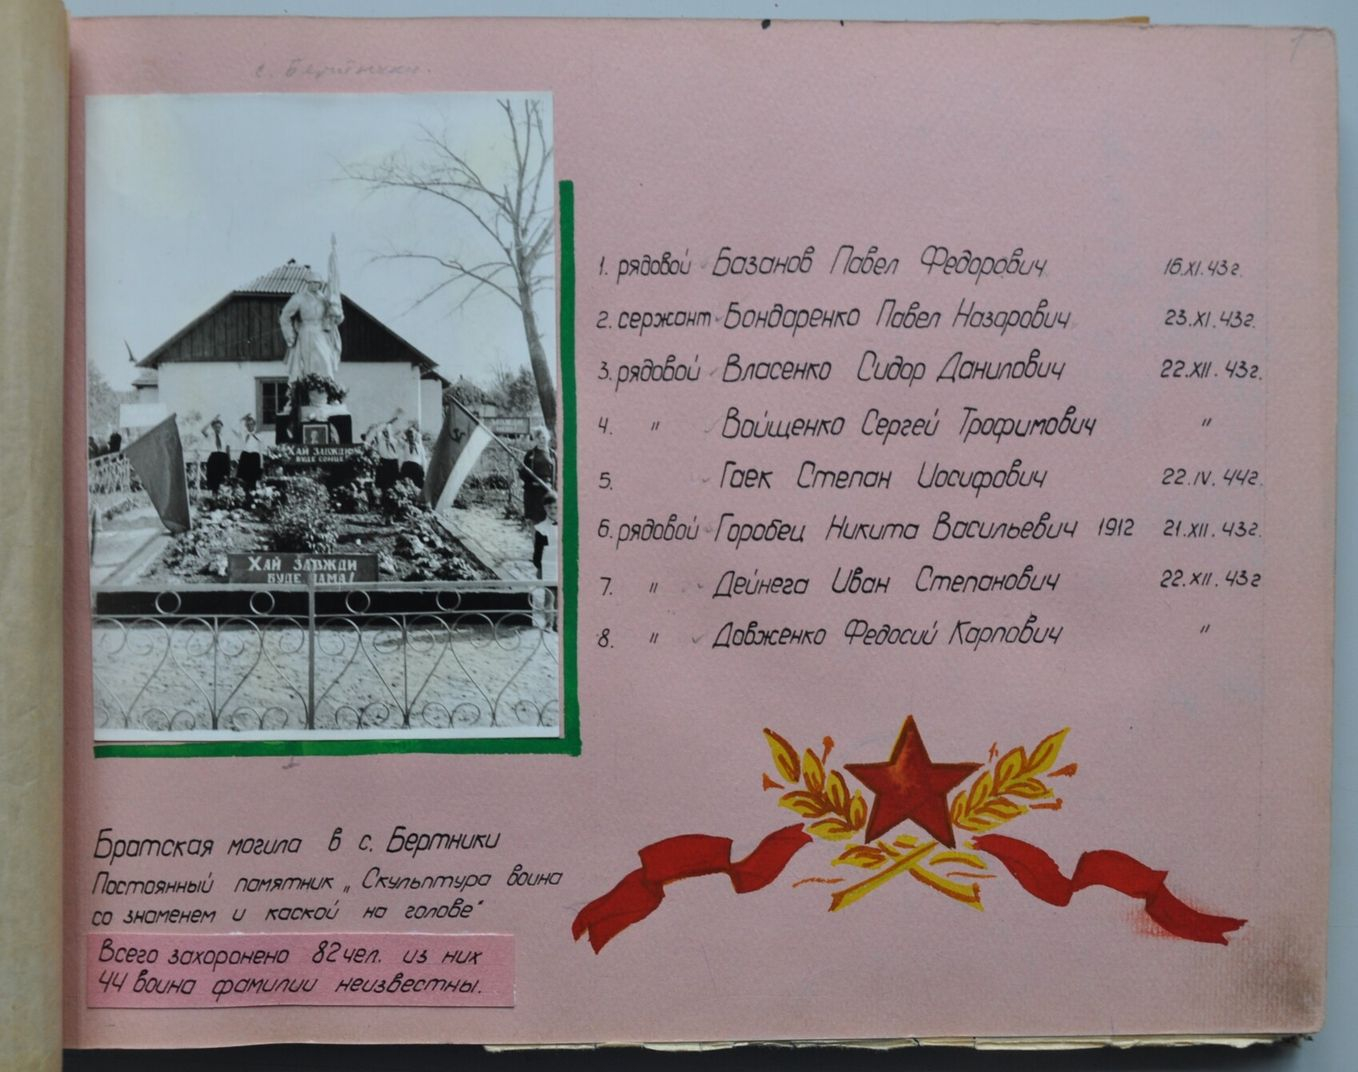 с. Бертники.
1
ХАЙ ЗАВЖДИ
БУДЕ СОНЦЕ
ХАЙ ЗАВЖДИ
БУДЕ МАМА!
Братская могила в с. Бертники
Постоянный памятник „Скульптура воина
со знаменем и каской на голове“
Всего захоронено 82 чел. из них
44 воина фамилии неизвестны.
1. рядовой Базанов Павел Федорович 16.XI.43г.
2. сержант Бондаренко Павел Назарович 23.XI.43г.
3. рядовой Власенко Сидор Данилович 22.XII.43г.
4. " Войщенко Сергей Трофимович "
5. Гаек Степан Иосифович 22.IV.44г.
6. рядовой Горобец Никита Васильевич 1912 21.XII.43г.
7. " Дейнега Иван Степанович 22.XII.43г
8. " Довженко Федосий Карпович "